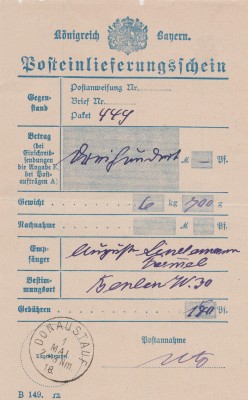 Königreich Bayern.
Posteinlieferungsschein
Gegenstand
Postanweisung Nr.
Brief Nr.
Paket 449
Betrag
(bei
Einschreibsendungen
die Angabe E,
bei Postaufträgen A)
Dreihundert M — Pf.
Gewicht 6 kg 700 g
Nachnahme M Pf.
Empfänger August Lindemann
Bestimmungsort Berlin W. 30
Gebühren 180 Pf.
DONAUSTAUF
1
MAI
Nm.
18.
Postannahme
B 149. rz